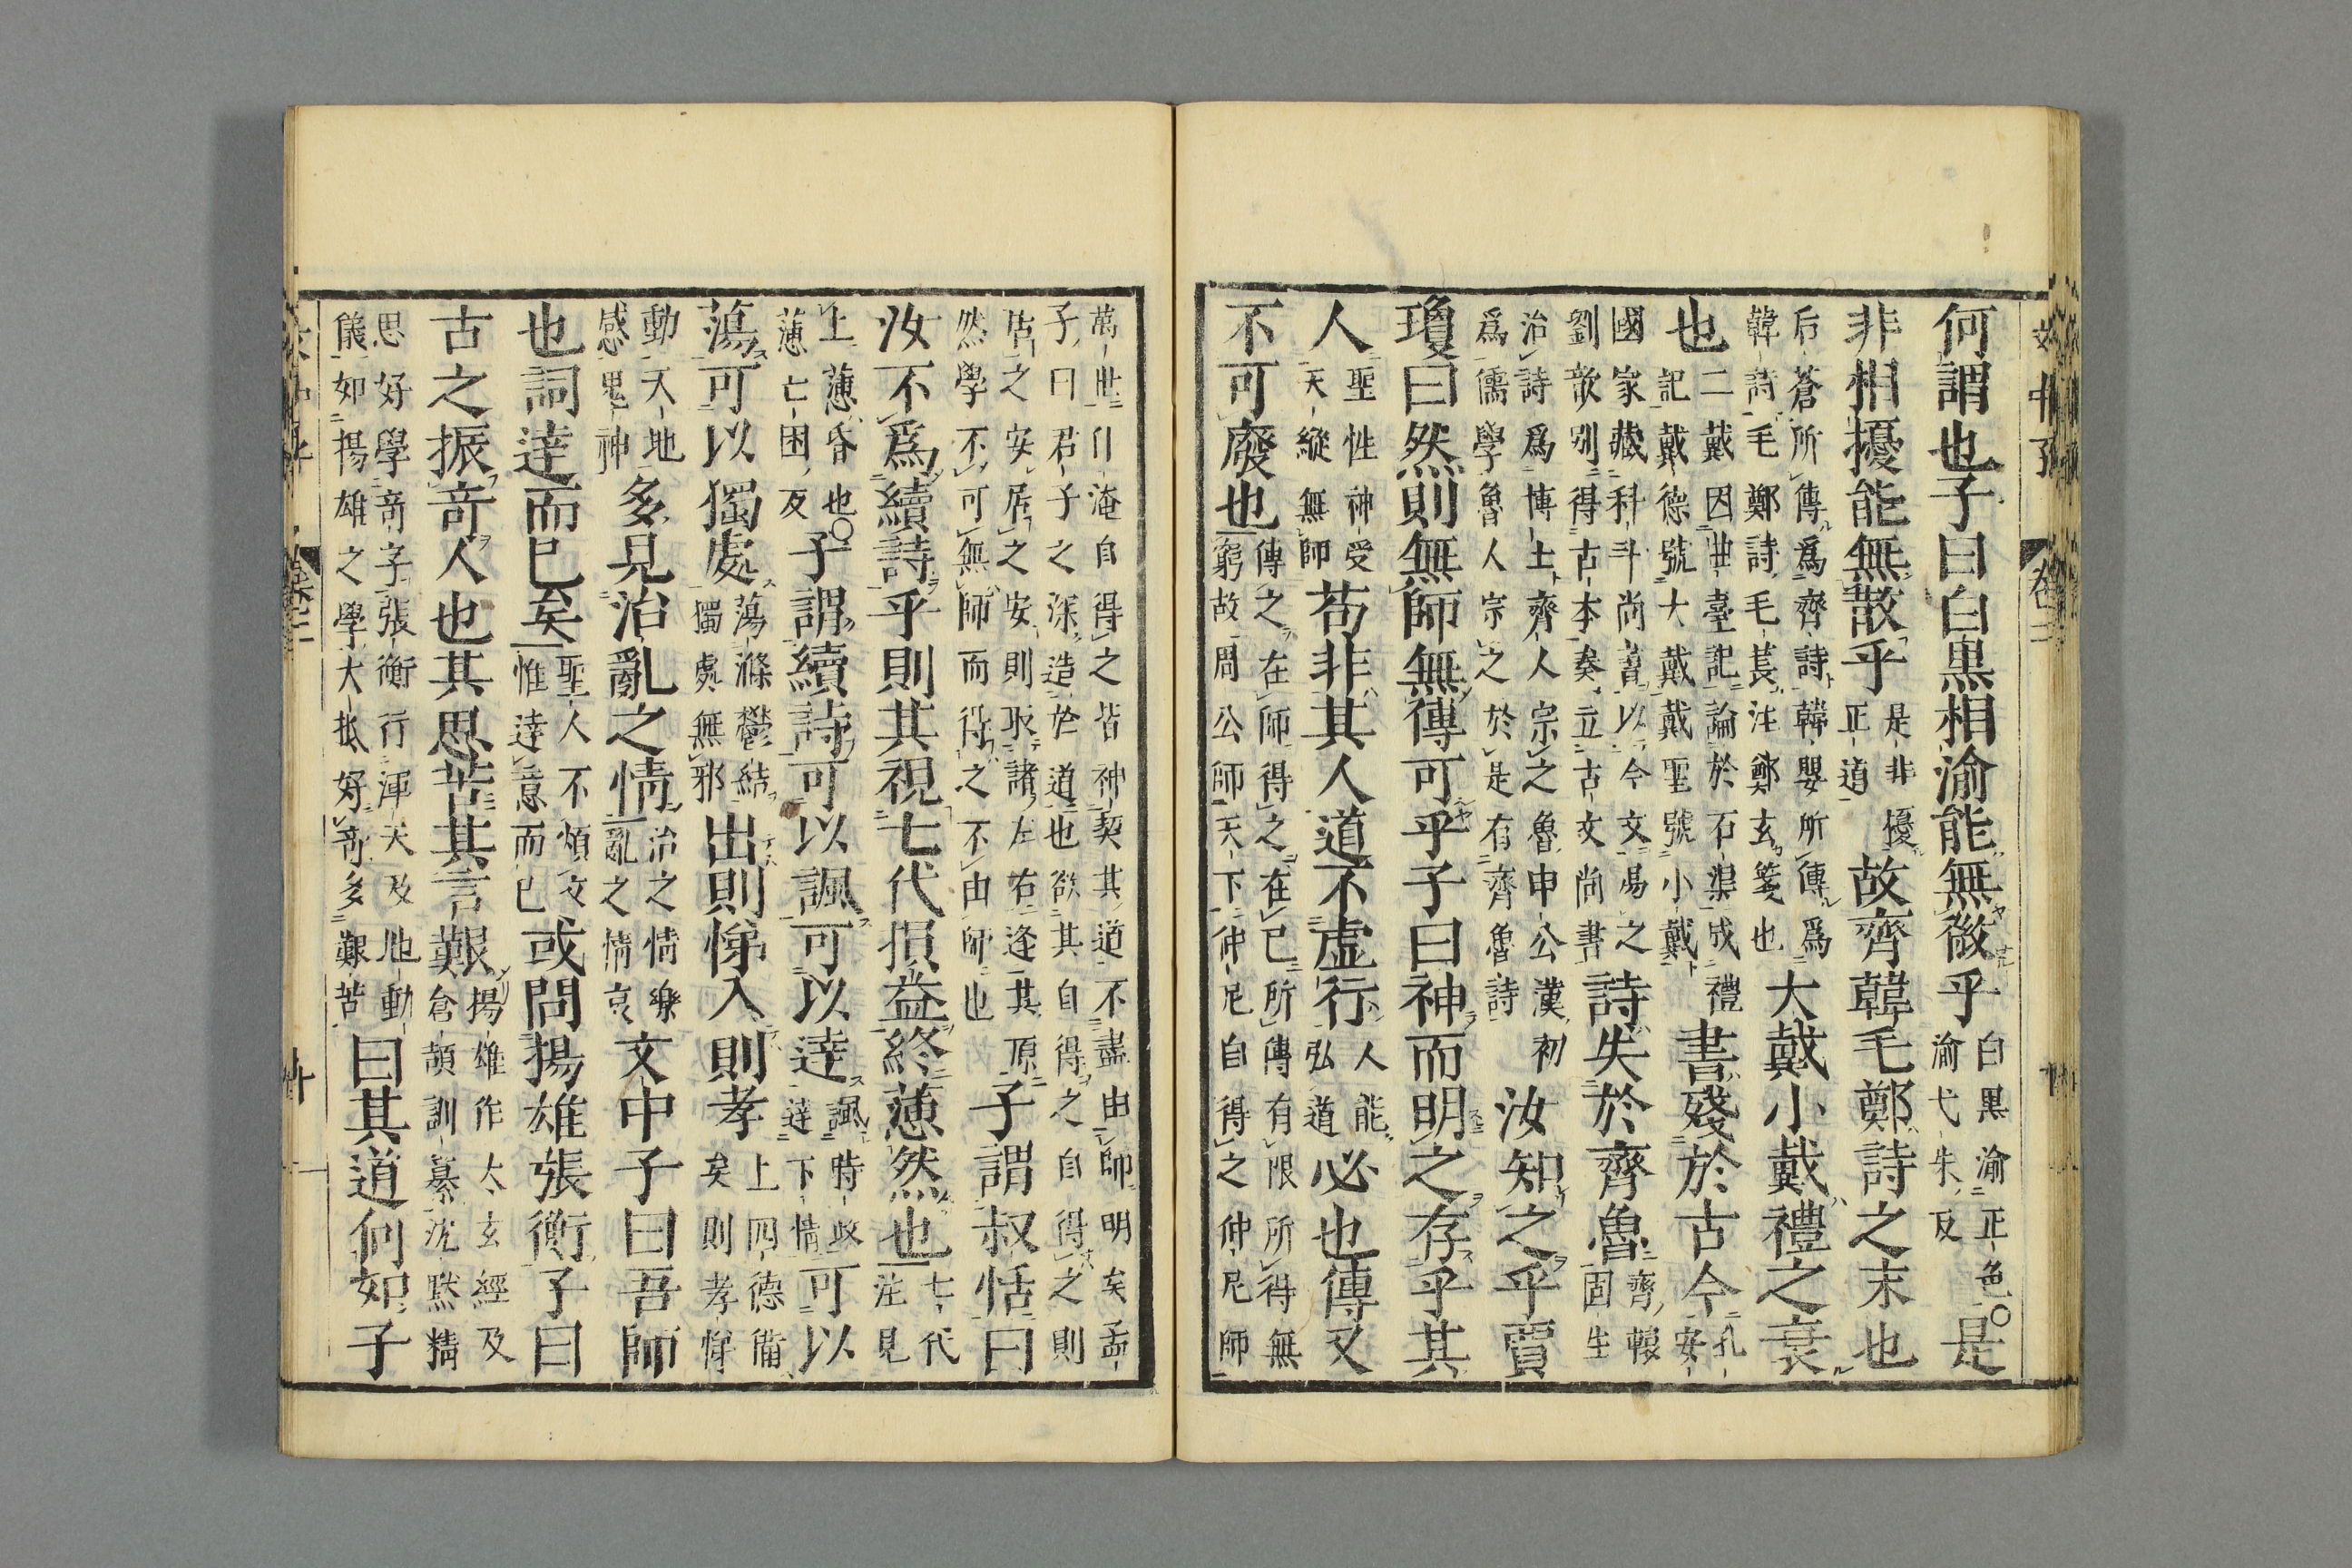 文中子 卷二
何謂也子曰白黒相渝能無微乎白黒渝正色○渝弋朱反是
非相擾能無散乎是非擾正道故齊韓毛鄭詩之末也
后蒼所傳爲齊詩韓嬰所傳爲韓詩毛鄭詩毛萇注鄭玄箋也大戴小戴禮之衰
也二戴因曲臺記論於石渠成禮記戴德號大戴戴聖號小戴書殘於古今孔安
國家藏科斗尚書以今文易之劉歆別得古本奏立古文尚書詩失於齊魯齊轅固生
治詩爲博士齊人宗之魯申公漢初爲儒學魯人宗之於是有齊魯詩汝知之乎賈
瓊曰然則無師無傳可乎子曰神而明之存乎其
人聖性神受天縱無師苟非其人道不虚行人能弘道必也傳又
不可廢也傳之在師得之在已所傳有限所得無窮故周公師天下仲尼自得之仲尼師
萬世
淹自得之皆神契其道不盡由師明矣孟子曰君子之深造於道也欲其自得之自得之則
居之安居之安則取諸左右逢其原然學不可無師而得之不由師也子謂叔恬曰
汝不爲續詩乎則其視七代損益終懣然也七代注見
上懣昏也○懣亡困反子謂續詩可以諷可以達諷時政達下情可以
蕩可以獨處蕩滌鬱結獨處無邪出則悌入則孝上四德備矣則孝悌
動天地感鬼神多見治亂之情治之情樂亂之情哀文中子曰吾師
也詞達而已矣聖人不煩文惟達意而已或問揚雄張衡子曰
古之振奇人也其思苦其言艱揚雄作太玄經及蒼頡訓纂沈黙精
思好學奇字張衡行渾天及地動儀如揚雄之學大抵好奇多艱苦曰其道何如子